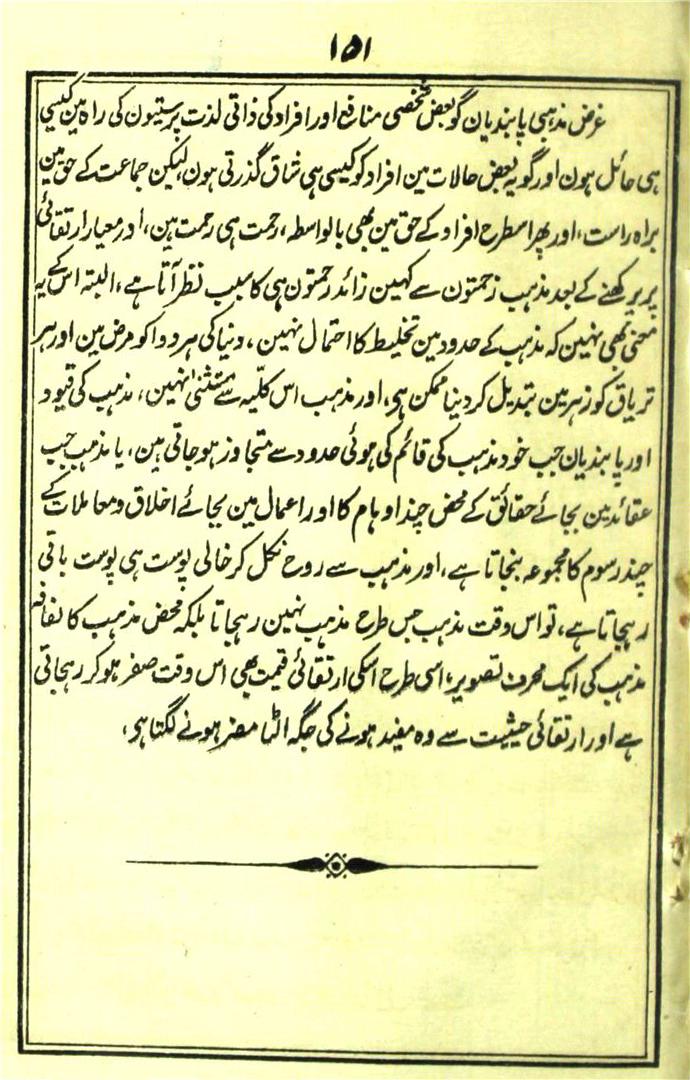 ۱۵۱
غرض مذہبی پابندیان گو بعض شخصی منافع اور افراد کی ذاتی لذت پرستیون کی راہ مین کیسی
ہی حائل ہون اور گو یہ بعض حالات مین افراد کو کیسی ہی شاق گذرتی ہون لیکن جماعت کے حق مین
براہ راست، اور پھر اسطرح افراد کے حق مین بھی بالواسطہ، رحمت ہی رحمت ہین، اور معیار ارتقائی
پر پرکھنے کے بعد مذہب زحمتون سے کہین زائد رحمتون ہی کا سبب نظر آتا ہے، البتہ اس کے یہ
معنی بھی نہین کہ مذہب کے حدود مین تخلیط کا احتمال نہین، دنیا کی ہر دوا کو مرض مین اور ہر
تریاق کو زہر مین تبدیل کر دینا ممکن ہی، اور مذہب اس کلّیہ سے مستثنیٰ نہین، مذہب کی قیود
اور پابندیان جب خود مذہب کی قائم کی ہوئی حدود سے متجاوز ہو جاتی ہین، یا مذہب جب
عقائد مین بجائے حقائق کے محض چند اوہام کا اور اعمال مین بجائے اخلاق و معاملات کے
چند رسوم کا مجموعہ بنجاتا ہے، اور مذہب سے روح نکل کر خالی پوست ہی پوست باقی
رہجاتا ہے، تو اس وقت مذہب جس طرح مذہب نہین رہجاتا بلکہ محض مذہب کا لفافہ
مذہب کی ایک محرف تصویر، اسی طرح اسکی ارتقائی قیمت بھی اس وقت صفر ہو کر رہجاتی
ہے اور ارتقائی حیثیت سے وہ مفید ہونے کی جگہ الٹا مضر ہونے لگتا ہی،